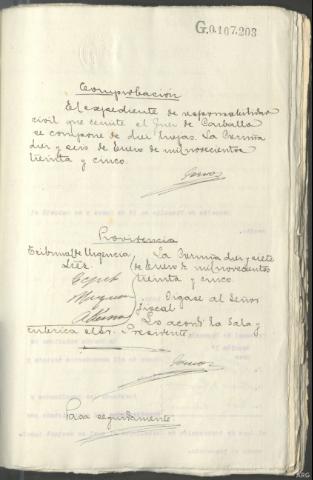 G.0.167.203
Comprobación
El expediente de responsabilidad
civil que remite el Juez de Carballo
se compone de diez hojas. La Coruña
diez y seis de Enero de mil novecientos
treinta y cinco.
Providencia
Tribunal de Urgencia La Coruña diez y siete
Sres. de Enero de mil novecientos
treinta y cinco.
Dígase al Señor
Fiscal
Lo acordó la Sala y
rubrica el Sr. Presidente.
Pasa seguidamente.
ARG